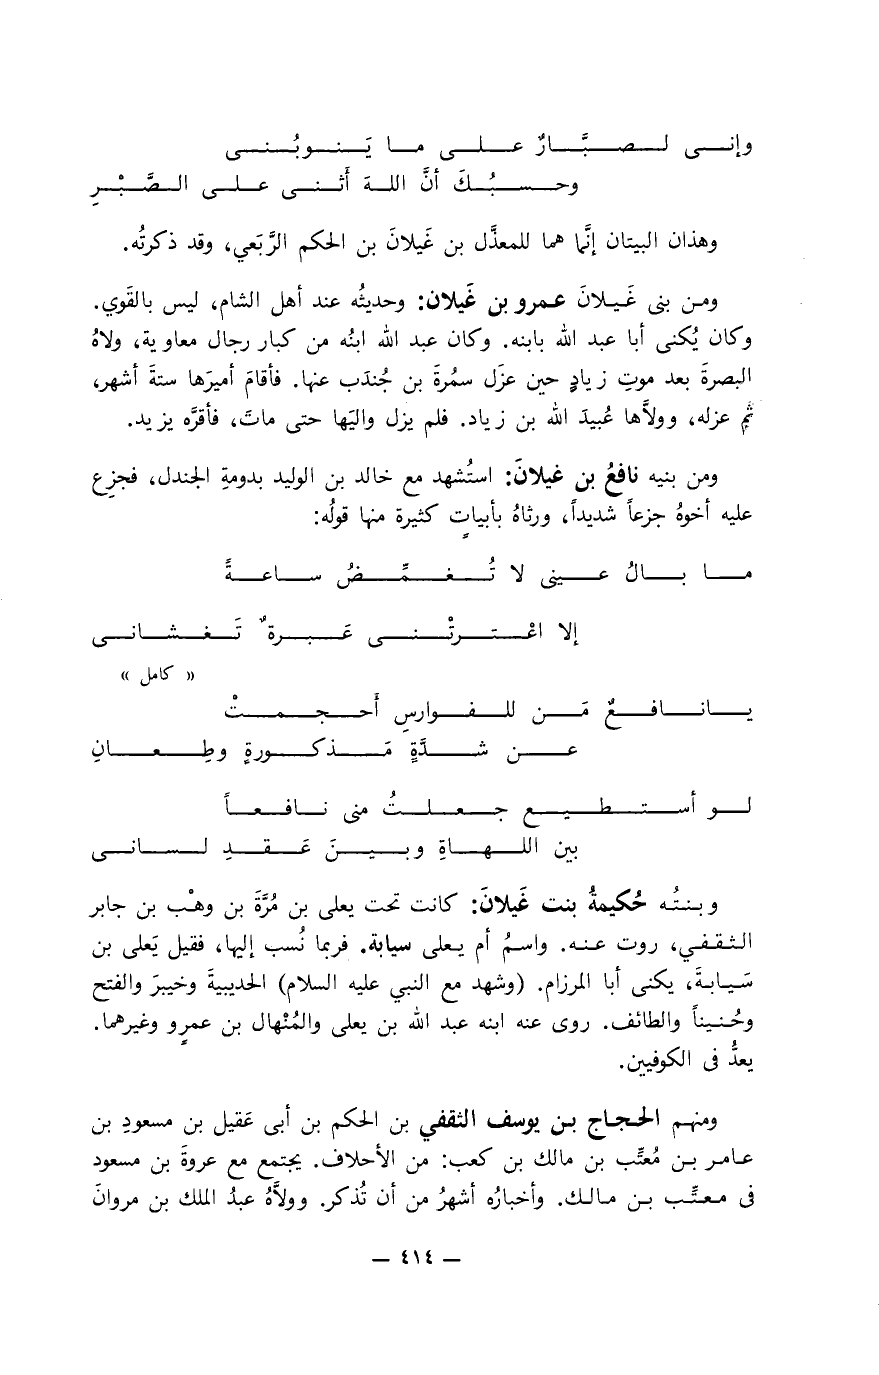 وإنى لصبَّارٌ على ما يَنوبُنى
وحسبُكَ أنَّ اللهَ أثنى على الصَّبْرِ
وهذان البيتان إنَّما هما للمعذَّل بن غَيلانَ بن الحكم الرَّبَعي، وقد ذكرتُه.
ومن بنى غَيلانَ عمرو بن غَيلان: وحديثُه عند أهل الشام، ليس بالقوي.
وكان يُكنى أبا عبد الله بابنه. وكان عبد الله ابنُه من كبار رجال معاوية، ولاهُ
البصرةَ بعد موتِ زيادٍ حين عزَل سمُرةَ بن جُندَب عنها. فأقامَ أميرَها ستةَ أشهر،
ثم عزله، وولاَّها عُبيدَ الله بن زياد. فلم يزل واليَها حتى ماتَ، فأقرَّه يزيد.
ومن بنيه نافعُ بن غيلانَ: استُشهد مع خالد بن الوليد بدومةِ الجندل، فجزِع
عليه أخوهُ جزعاً شديداً، ورثاهُ بأبياتٍ كثيرة منها قولُه:
ما بالُ عينى لا تُغمِّضُ ساعةً
إلا اعْترتْنى عَبرةٌ تَغشانى
« كامل »
يانافعٌ مَن للفوارسِ أَحجمتْ
عن شدَّةٍ مَذكورةٍ وطِعانِ
لو أستطيع جعلتُ منى نافعاً
بين اللهاةِ وبينَ عَقدِ لسانى
وبنتُه حُكيمةُ بنت غَيلانَ: كانت تحت يعلى بن مُرَّةَ بن وهْب بن جابر
الثقفي، روت عنه. واسمُ أم يعلى سيابة. فربما نُسب إليها، فقيل يَعلى بن
سَيابةَ، يكنى أبا المرزام. (وشهد مع النبي عليه السلام) الحديبيةَ وخيبرَ والفتح
وحُنيناً والطائف. روى عنه ابنه عبد الله بن يعلى والمُنْهال بن عمرٍو وغيرهما.
يعدُّ فى الكوفيين.
ومنهم الحجاج بن يوسف الثقفي بن الحكم بن أبى عَقيل بن مسعودِ بن
عامر بن مُعتِّب بن مالك بن كعب: من الأحلاف. يجتمع مع عروةَ بن مسعود
فى معتِّب بن مالك. وأخبارُه أشهرُ من أن تُذكر. وولاَّهُ عبدُ الملك بن مروانَ
— ٤١٤ —